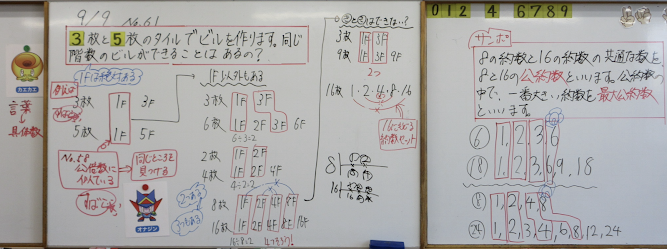 9/9 No.61
3枚と5枚のタイルでビルを作ります。同じ
階数のビルができることはあるの?
カエカエ
言葉
具体数
1Fは
3枚 1F 3F
5枚 1F 5F
No.58
公倍数に
似ている
同じところを
見つける
オナジン
1F以外もある
3枚 1F 3F
6枚 1F 2F 3F 6F
6÷3=2
2枚 1F 2F
4枚 1F 2F 4F
4÷2=2
8枚 1F 2F 4F 8F
16枚 1F 2F 4F 8F 16F
16÷8=2
3枚 1F 3F
9枚 1F 3F 9F
2つ
16枚 1・2・4・8・16
約数セット
8
16
0 1 2 4 6 7 8 9
サンポ
8の約数と16の約数の共通な数を、
8と16の公約数といいます。公約数の
中で、一番大きい約数を最大公約数
といいます。
⑥ 1, 2, 3, 6
⑱ 1, 2, 3, 6, 9, 18
⑧ 1, 2, 4, 8
㉔ 1, 2, 3, 4, 6, 8, 12, 24